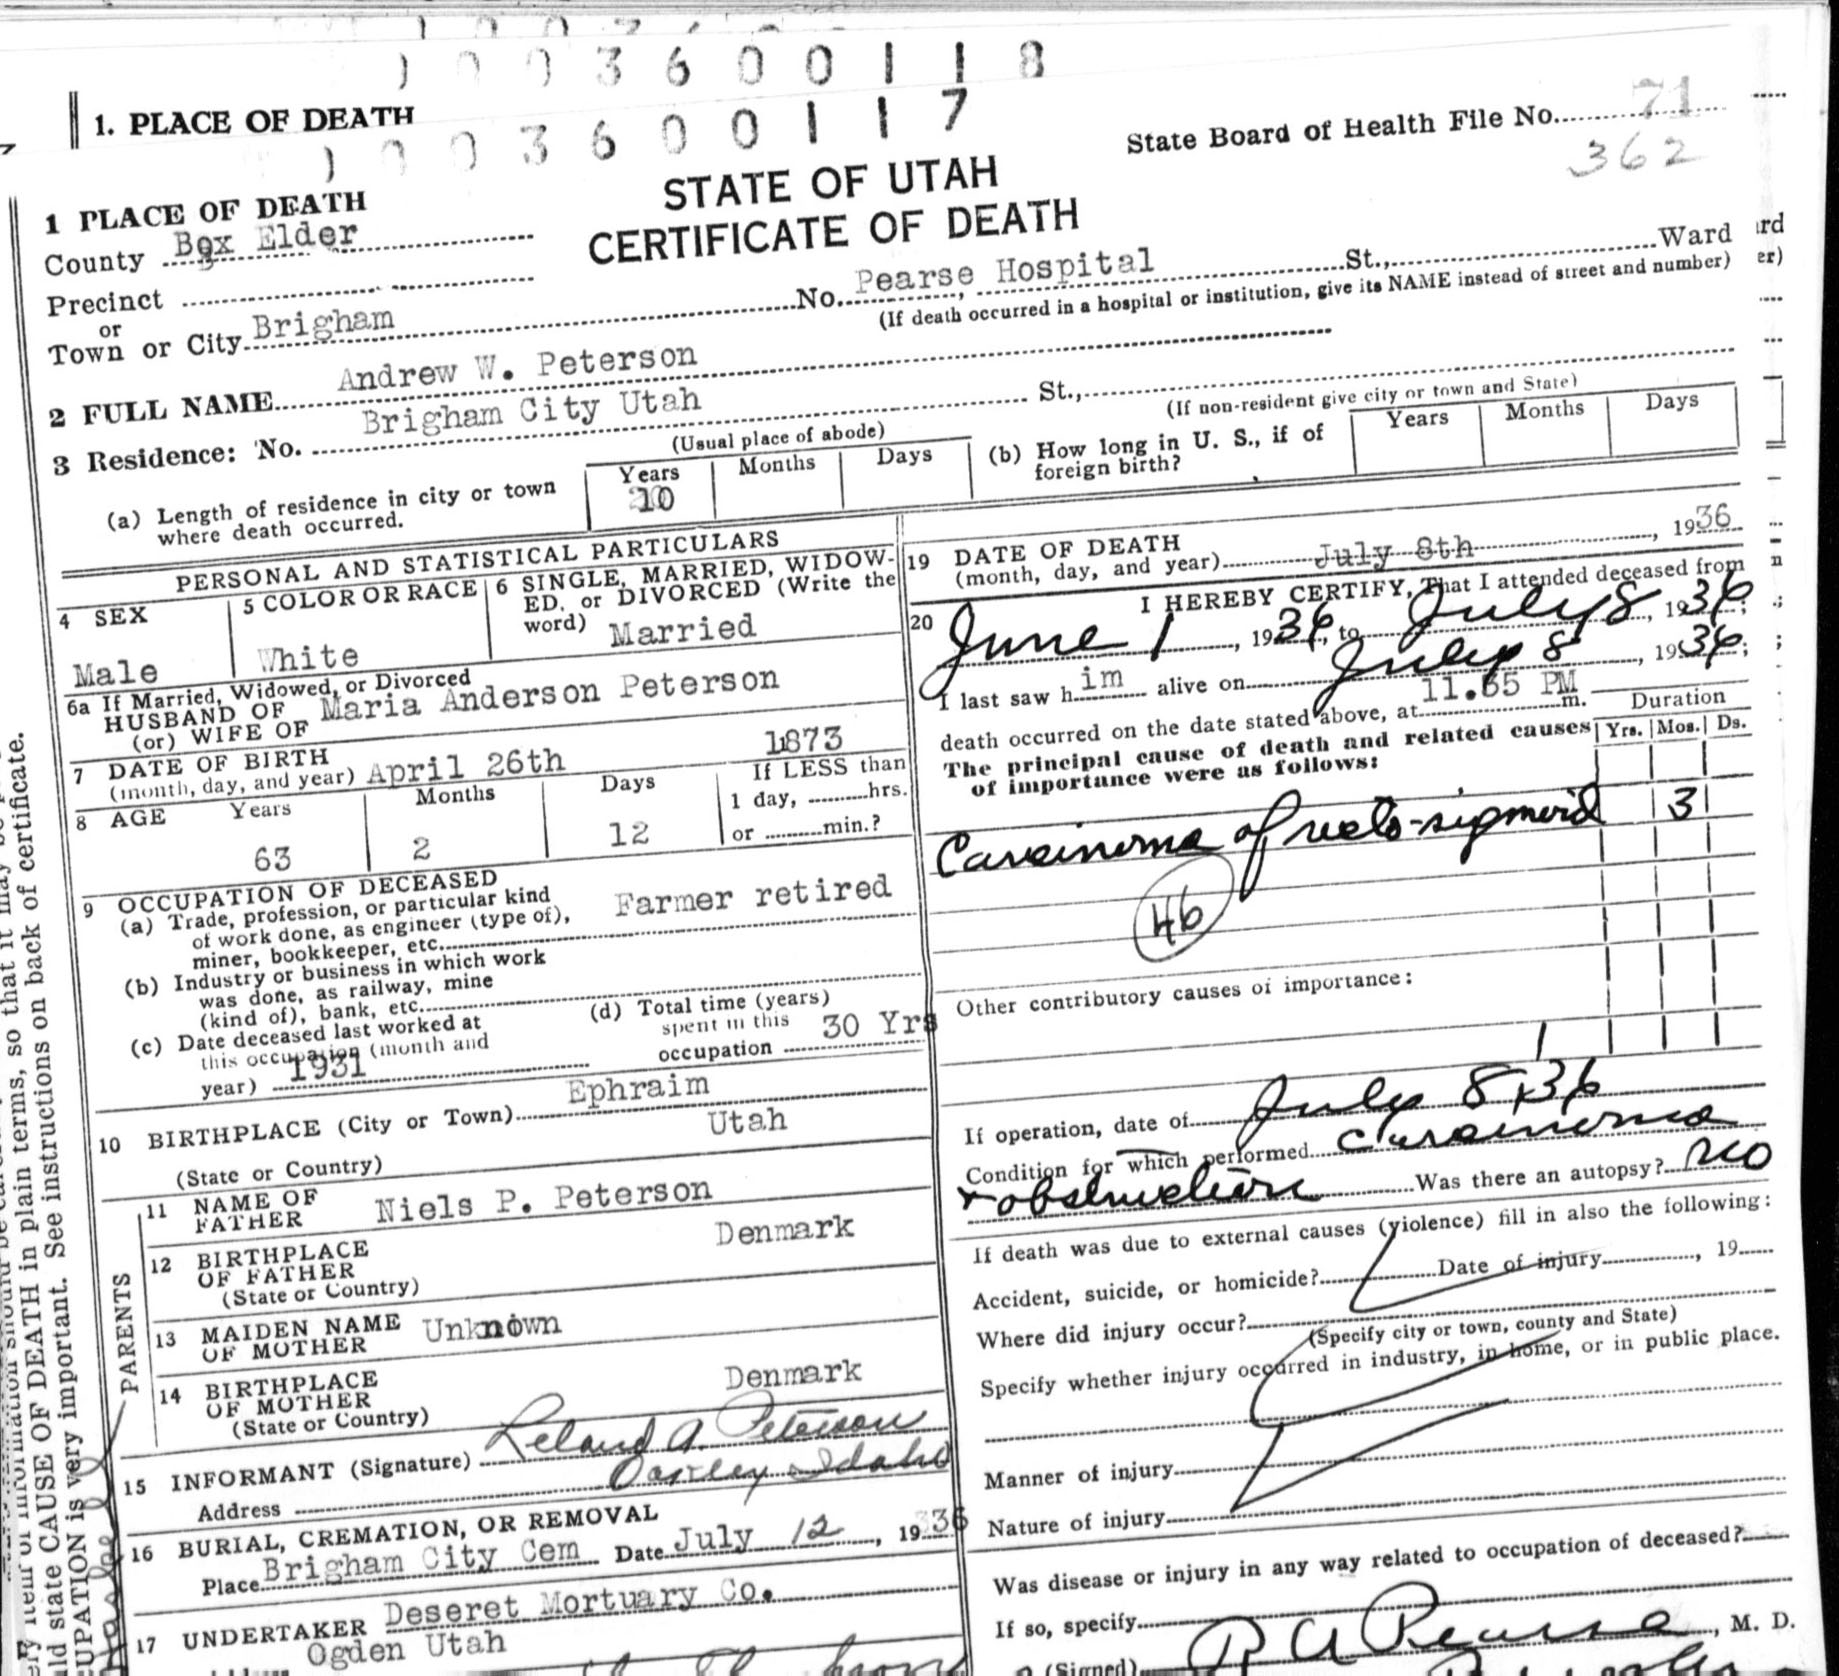 1 0 0 3 6 0 0 1 1 8
1. PLACE OF DEATH
1 0 0 3 6 0 0 1 1 7
State Board of Health File No. 71
362
STATE OF UTAH
CERTIFICATE OF DEATH
1 PLACE OF DEATH
County Box Elder
Precinct
or
Town or City Brigham No. Pearse Hospital St., Ward
(If death occurred in a hospital or institution, give its NAME instead of street and number)
2 FULL NAME Andrew W. Peterson
3 Residence: No. Brigham City Utah St.,
(Usual place of abode) (If non-resident give city or town and State)
(a) Length of residence in city or town where death occurred. Years 10 Months Days
(b) How long in U. S., if of foreign birth? Years Months Days
PERSONAL AND STATISTICAL PARTICULARS
4 SEX Male
5 COLOR OR RACE White
6 SINGLE, MARRIED, WIDOW-
ED, or DIVORCED (Write the
word) Married
6a If Married, Widowed, or Divorced
HUSBAND OF Maria Anderson Peterson
(or) WIFE OF
7 DATE OF BIRTH
(month, day, and year) April 26th 1873
8 AGE Years 63 Months 2 Days 12
If LESS than
1 day, hrs.
or min.?
9 OCCUPATION OF DECEASED
(a) Trade, profession, or particular kind
of work done, as engineer (type of),
miner, bookkeeper, etc. Farmer retired
(b) Industry or business in which work
was done, as railway, mine
(kind of), bank, etc.
(c) Date deceased last worked at
this occupation (month and
year) 1931
(d) Total time (years)
spent in this
occupation 30 Yrs
10 BIRTHPLACE (City or Town) Ephraim
(State or Country) Utah
PARENTS
11 NAME OF
FATHER Niels P. Peterson
12 BIRTHPLACE
OF FATHER Denmark
(State or Country)
13 MAIDEN NAME
OF MOTHER Unknown
14 BIRTHPLACE
OF MOTHER Denmark
(State or Country)
15 INFORMANT (Signature) Leland A. Peterson
Address Oakley Idaho
16 BURIAL, CREMATION, OR REMOVAL
Place Brigham City Cem Date July 12, 1936
17 UNDERTAKER Deseret Mortuary Co.
Ogden Utah
19 DATE OF DEATH
(month, day, and year) July 8th, 1936
20 I HEREBY CERTIFY, That I attended deceased from
June 1, 1936, to July 8, 1936;
I last saw him alive on July 8, 1936;
death occurred on the date stated above, at 11.55 PM m.
The principal cause of death and related causes
of importance were as follows:
Duration
Yrs. Mos. Ds.
Carcinoma of recto-sigmoid 3
46
Other contributory causes of importance:
If operation, date of July 8, 36
Condition for which performed carcinoma
+ obstruction Was there an autopsy? no
If death was due to external causes (violence) fill in also the following:
Accident, suicide, or homicide? Date of injury, 19
Where did injury occur?
(Specify city or town, county and State)
Specify whether injury occurred in industry, in home, or in public place.
Manner of injury
Nature of injury
Was disease or injury in any way related to occupation of deceased?
If so, specify
(Signed) R A Pearse, M. D.
state CAUSE OF DEATH in plain terms, so that it may be
is very important. See instructions on back of certificate.